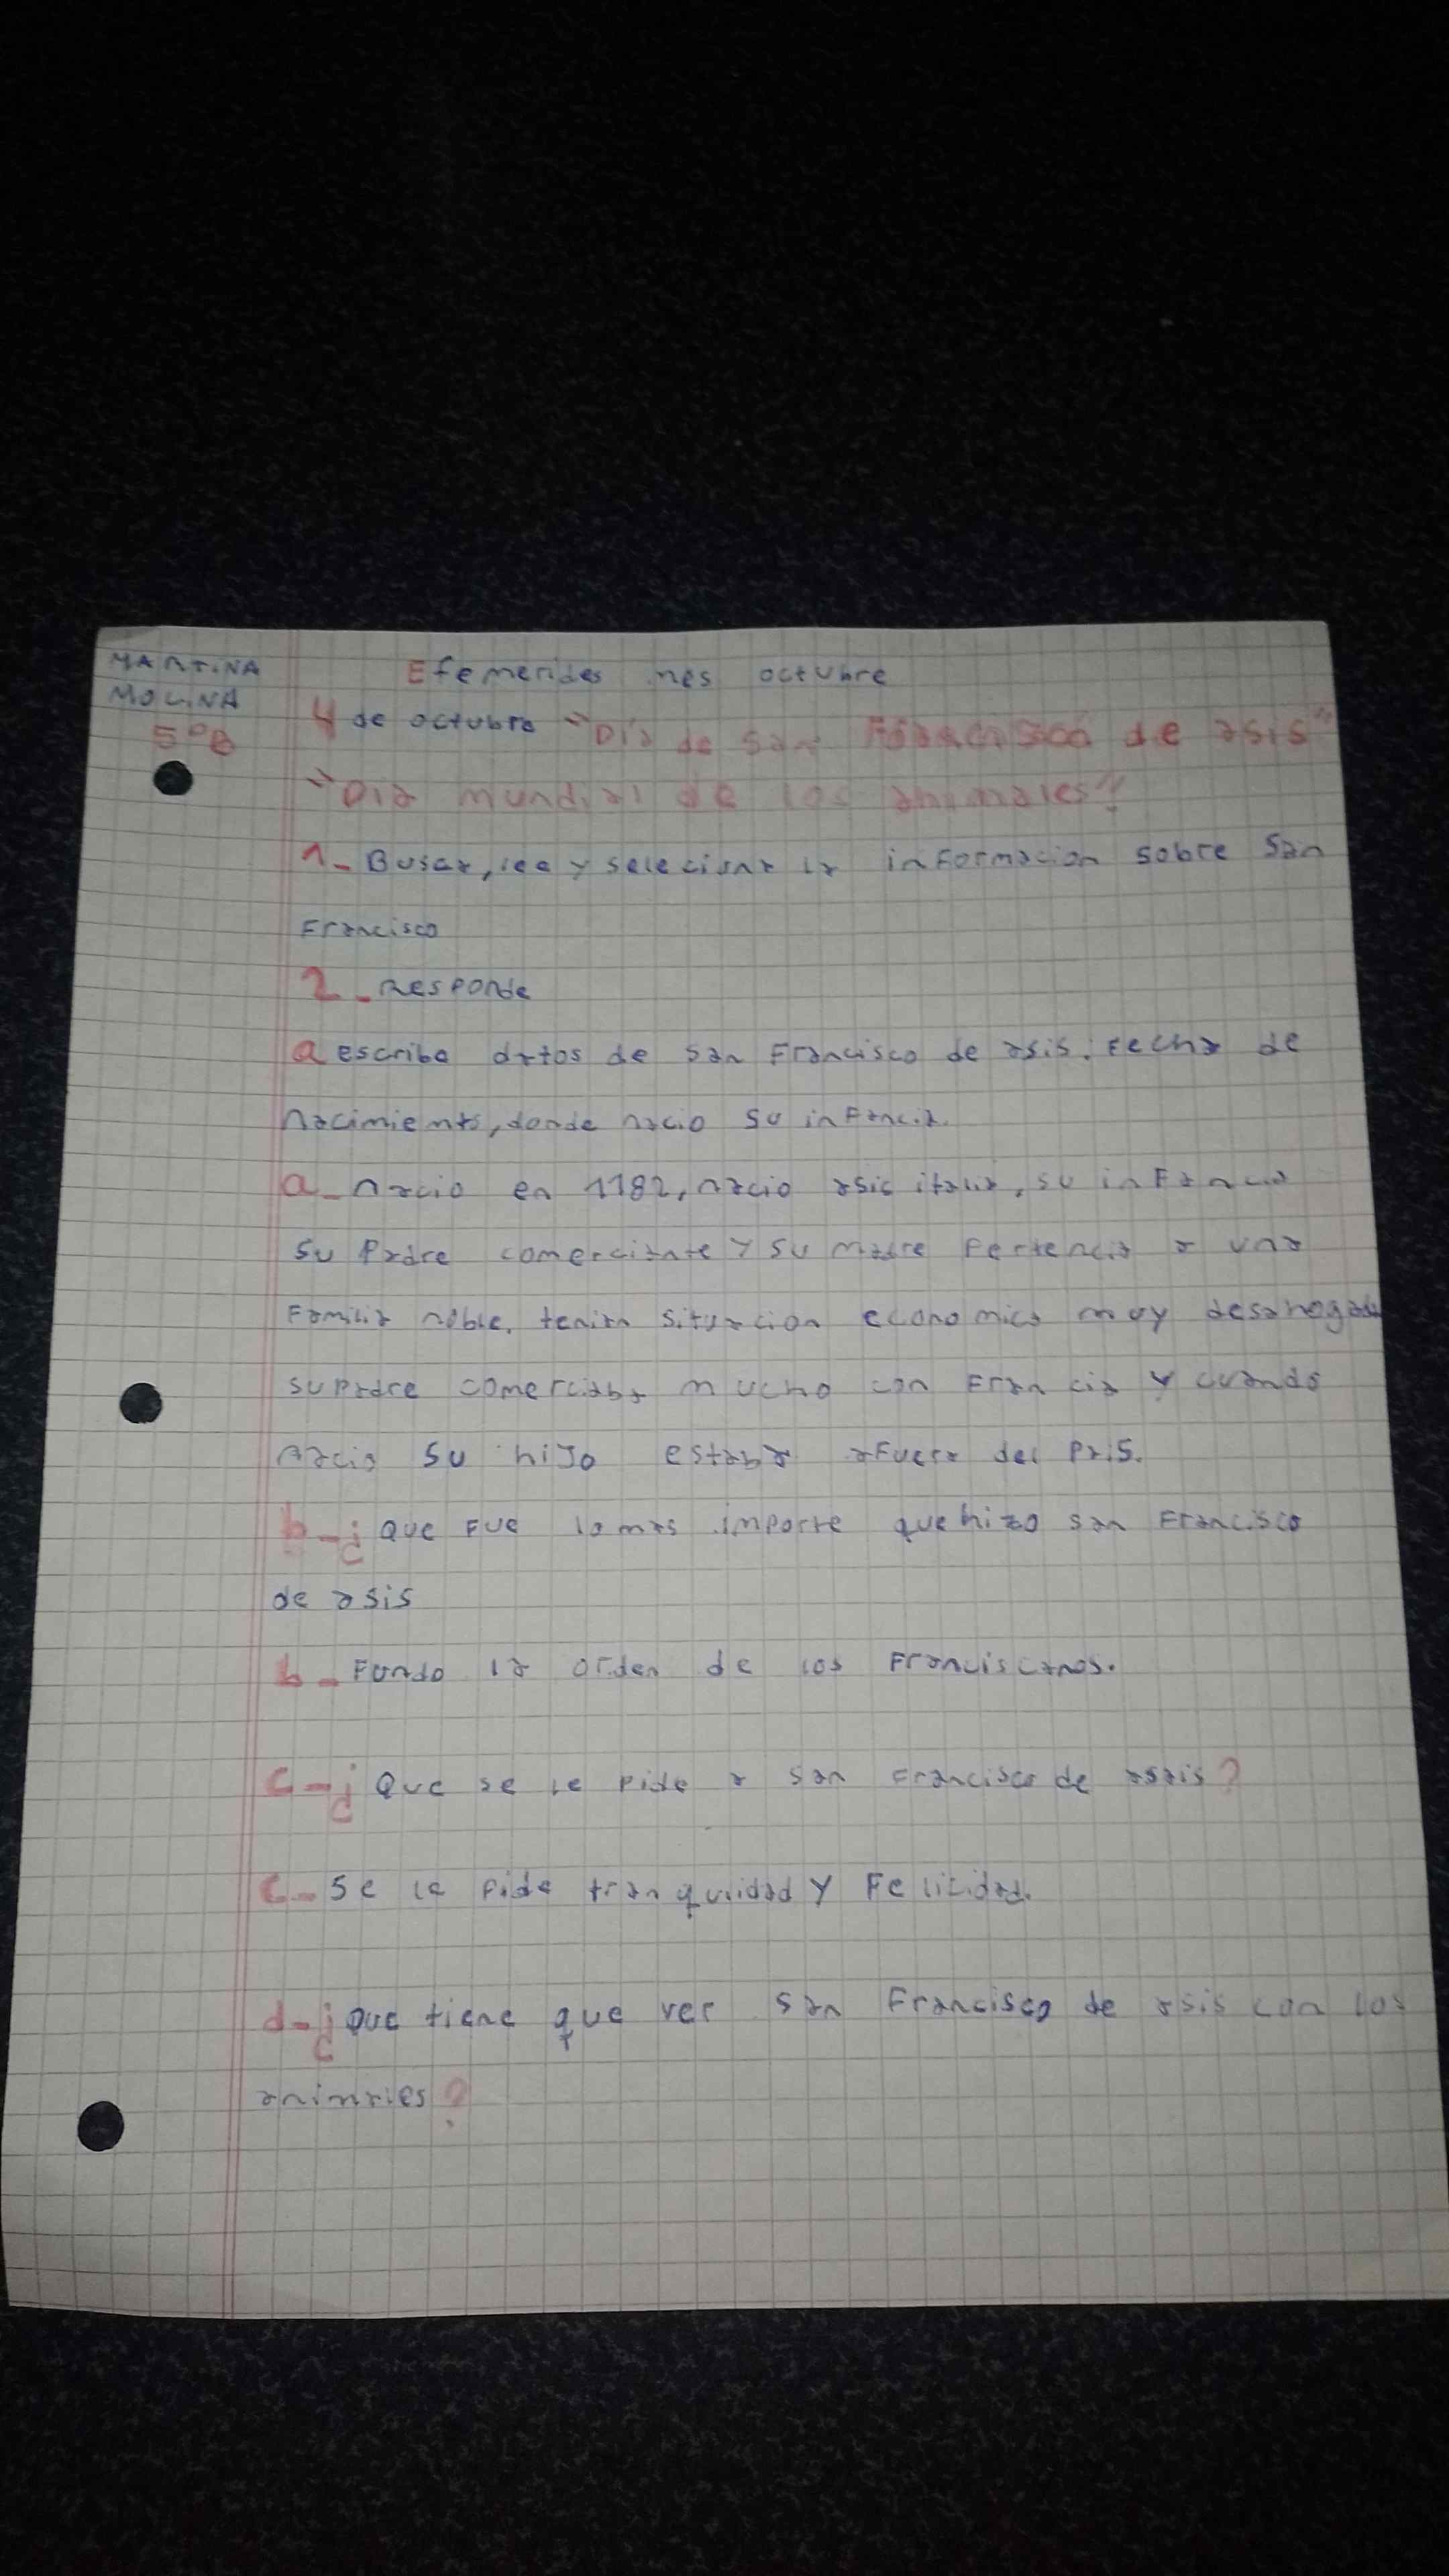 MARTINA
MOLINA
5°B
Efemerides mes octubre
4 de octubre "Dia de san Francisco de asis"
"Dia mundial de los animales"
1- Buscar, lee y selecionar la informacion sobre San
Francisco
2- Responde
a escribe datos de san Francisco de asis. Fecha de
nacimiento, donde nacio su infancia.
a- nacio en 1182, nacio asis italia, su infancia
su Padre comerciante y su madre Pertencia a una
Familia noble. tenian situacion economica muy desahogada
su Padre comerciaba mucho con Francia y cuando
nacio su hijo estaba afuera del Pais.
b-¿ Que Fue lo mas importe que hizo san Francisco
de asis
b- Fundo la orden de los Franciscanos.
c-¿ Que se le pide a san Francisco de asais?
c- Se le pide tranquilidad y Felicidad.
d-¿ Que tiene que ver san Francisco de asis con los
animales?